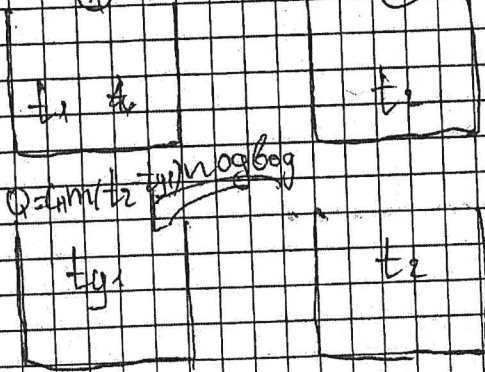 t₁ t₂
Q=cm(t₂ - ty₁) подвод
ty₁ t₂